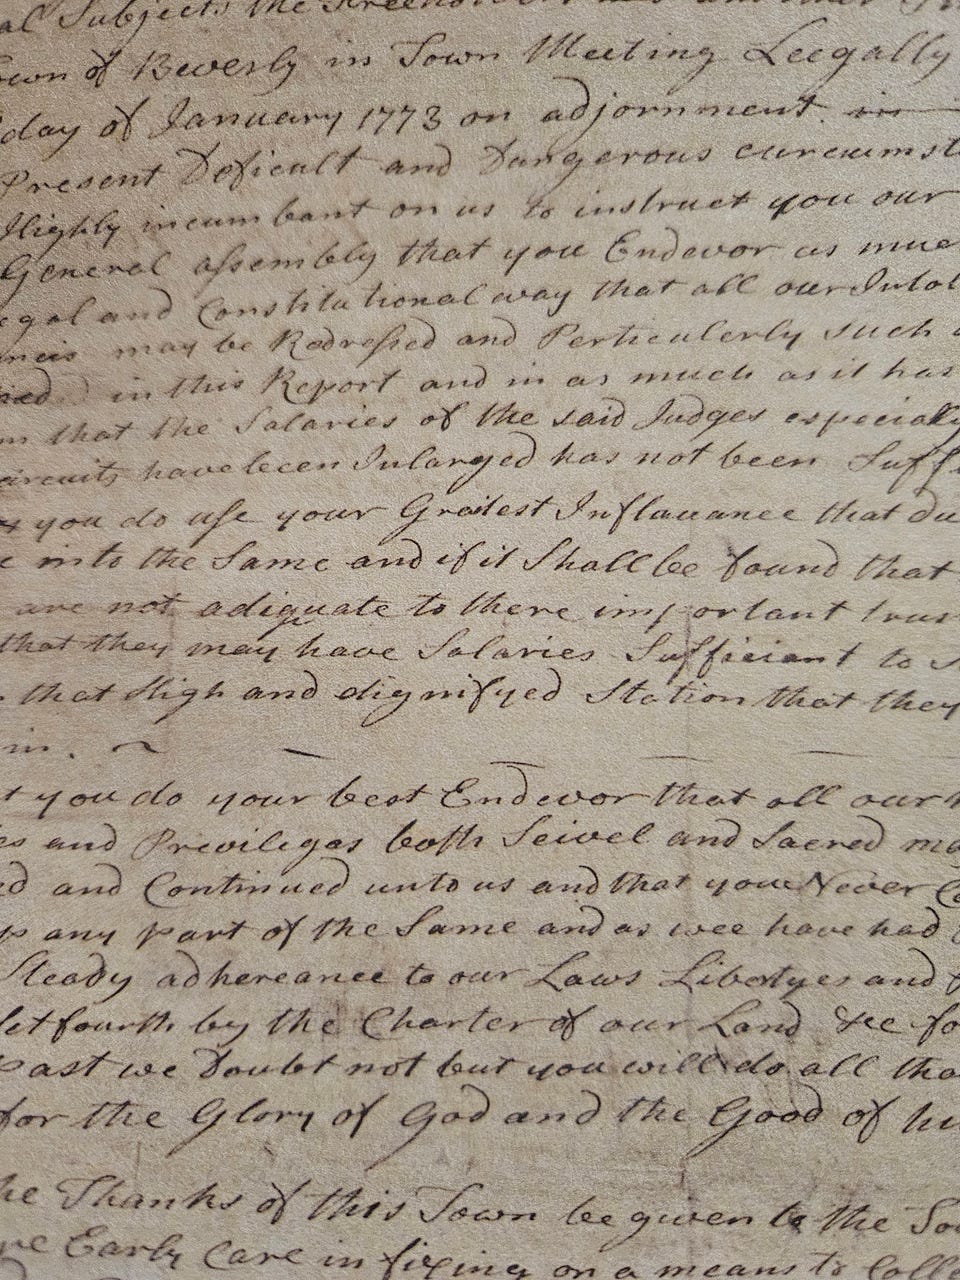 al Subjects the Freeholders
own of Beverly in Town Meeting Leegally
day of January 1773 on adjornment. in
Present Deficult and Dangerous curcumst
Highly incumbant on us to instruct you our
General assembly that you Endevor as muc
egal and Constitutional way that all our Intol
ncis may be Redressed and Perticulerly such
in this Report and in as much as it has
m that the Salaries of the said Judges especially
circuits have been Inlarged has not been Suffi
you do use your Gratest Inflauance that du
e into the Same and if it Shall be found that
are not adiquate to there important trus
that they may have Salaries Sufficiant to s
that High and dignifyed Station that they
in. ~
t you do your best Endevor that all our
es and Privileges both Seivel and Sacred ma
ed and Continued unto us and that you Never Co
p any part of the Same and as wee have had
Steady adhereance to our Laws Libertyes and
set fourth by the Charter of our Land &c fo
Past we Doubt not but you will do all tha
for the Glory of God and the Good of hi
he Thanks of this Town be given to the
re Early Care in fixing on a means to Coll